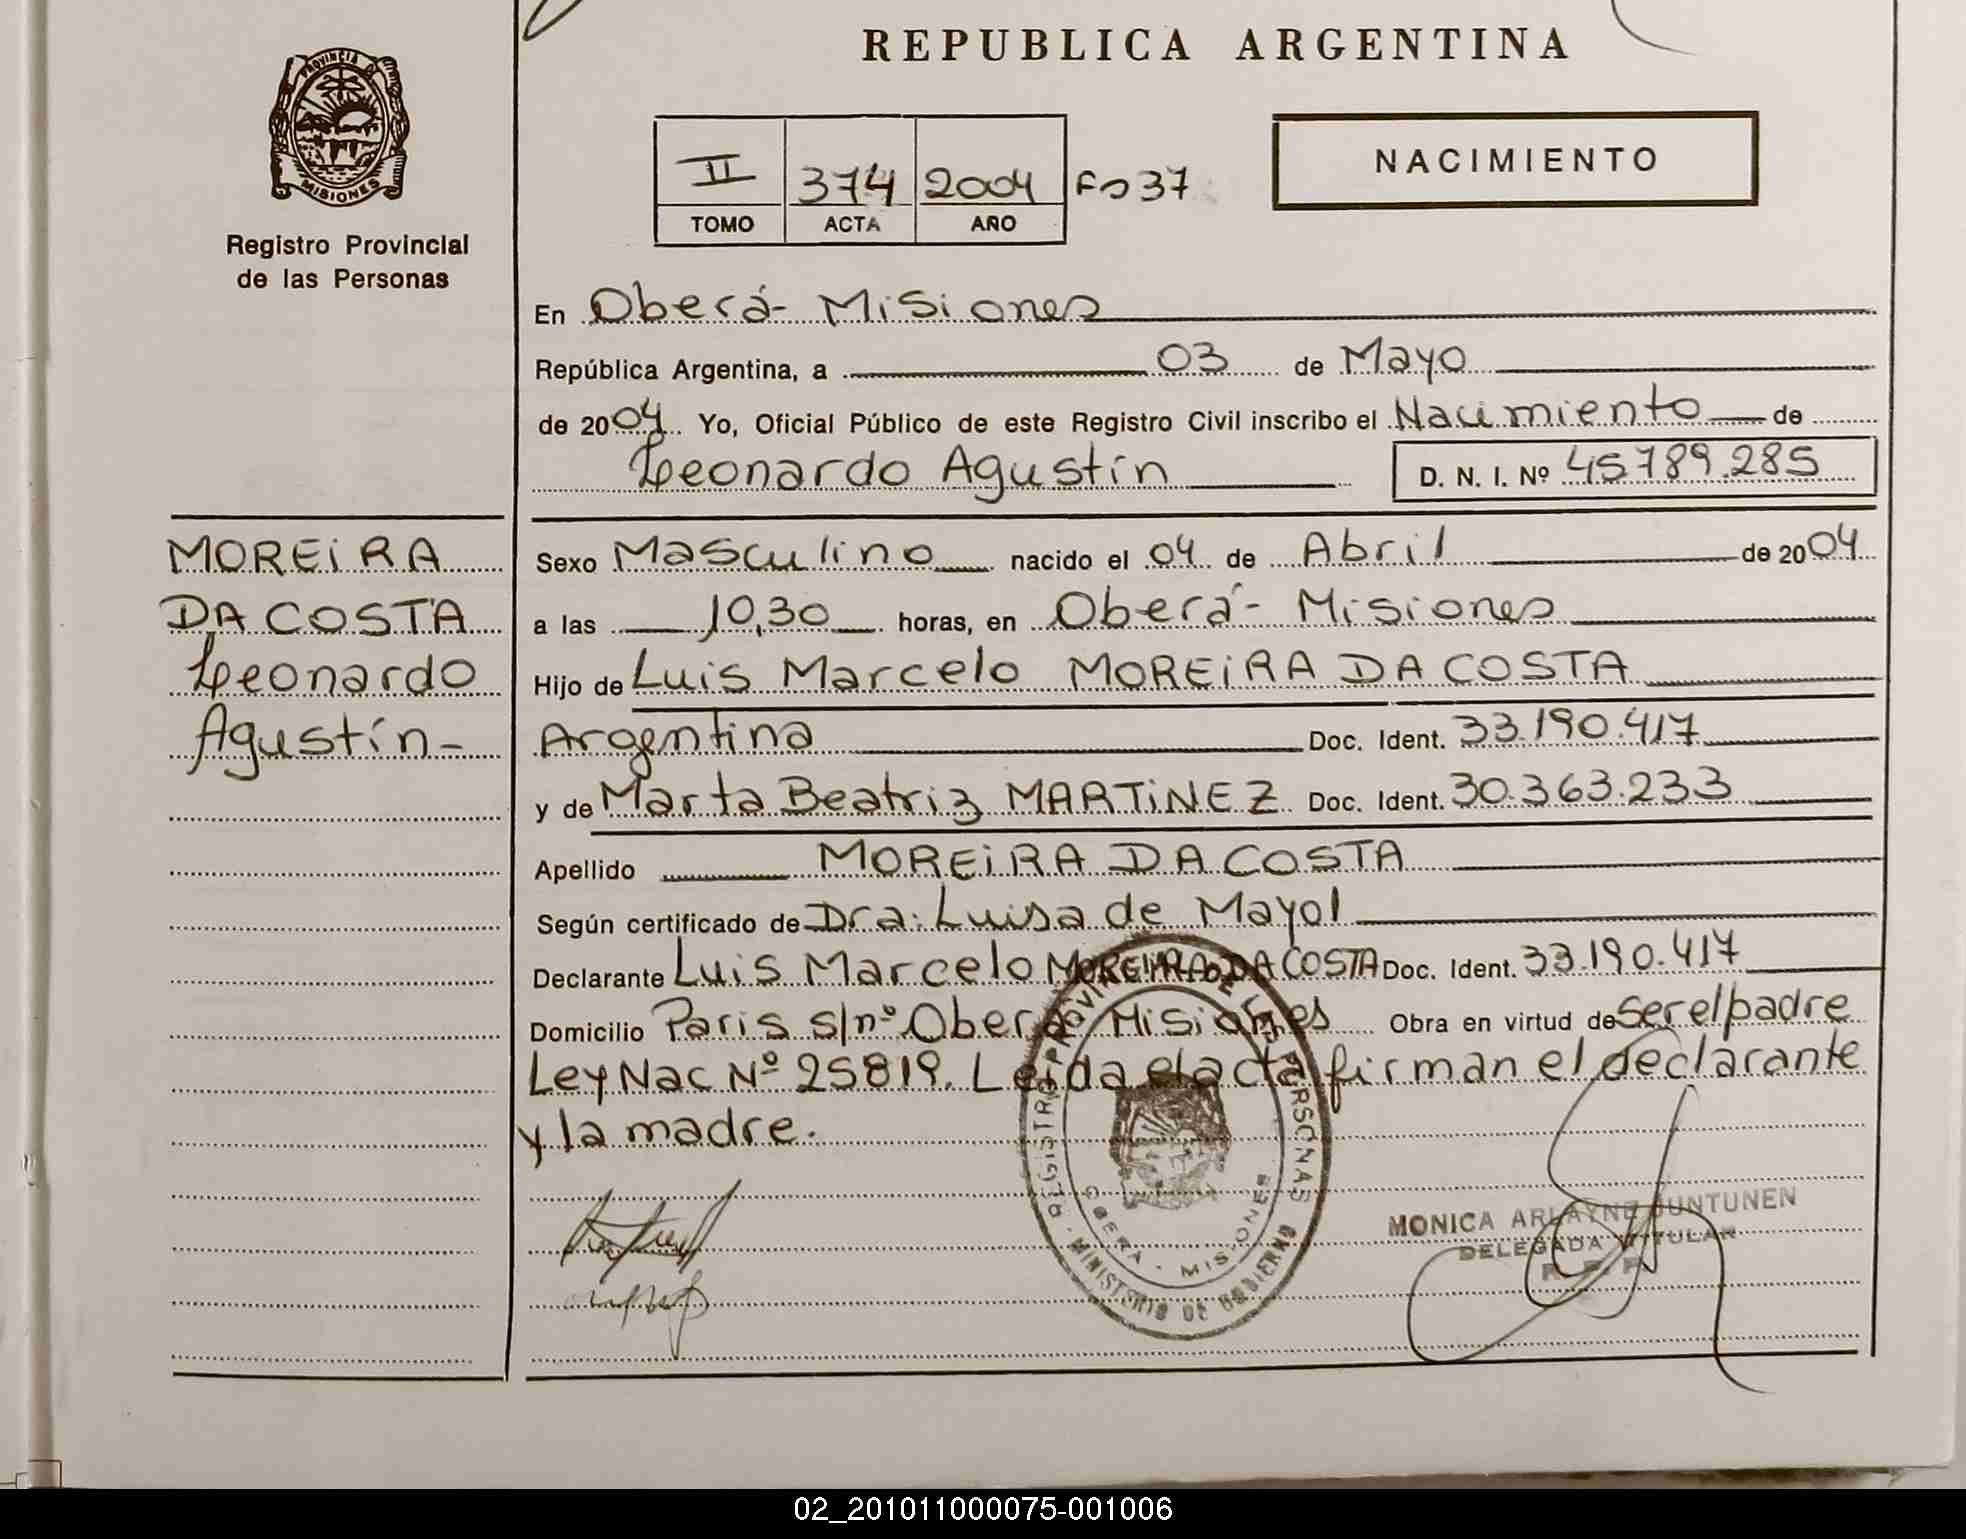 REPUBLICA ARGENTINA
PROVINCIA DE
MISIONES
Registro Provincial
de las Personas
II 374 2004 Fo 37
TOMO ACTA AÑO
NACIMIENTO
En Oberá - Misiones
República Argentina, a 03 de Mayo
de 2004 Yo, Oficial Público de este Registro Civil inscribo el Nacimiento de
Leonardo Agustín D. N. I. Nº 45789.285
MOREIRA
DA COSTA
Leonardo
Agustín-
Sexo Masculino nacido el 04 de Abril de 2004
a las 10,30 horas, en Oberá - Misiones
Hijo de Luis Marcelo MOREIRA DA COSTA
Argentina Doc. Ident. 33.190.417
y de Marta Beatriz MARTINEZ Doc. Ident. 30.363.233
Apellido MOREIRA DA COSTA
Según certificado de Dra. Luisa de Mayol
Declarante Luis Marcelo MOREIRA DA COSTA Doc. Ident. 33.190.417
Domicilio Paris s/nº Oberá Misiones Obra en virtud de ser el padre
Ley Nac Nº 25819. Leída el acta firman el declarante
y la madre.
REGISTRO PROVINCIAL DE LAS PERSONAS
OBERA - MISIONES
MINISTERIO DE GOBIERNO
MONICA ARLAYNE JUNTUNEN
DELEGADA TITULAR
R. P. P.
02_201011000075-001006